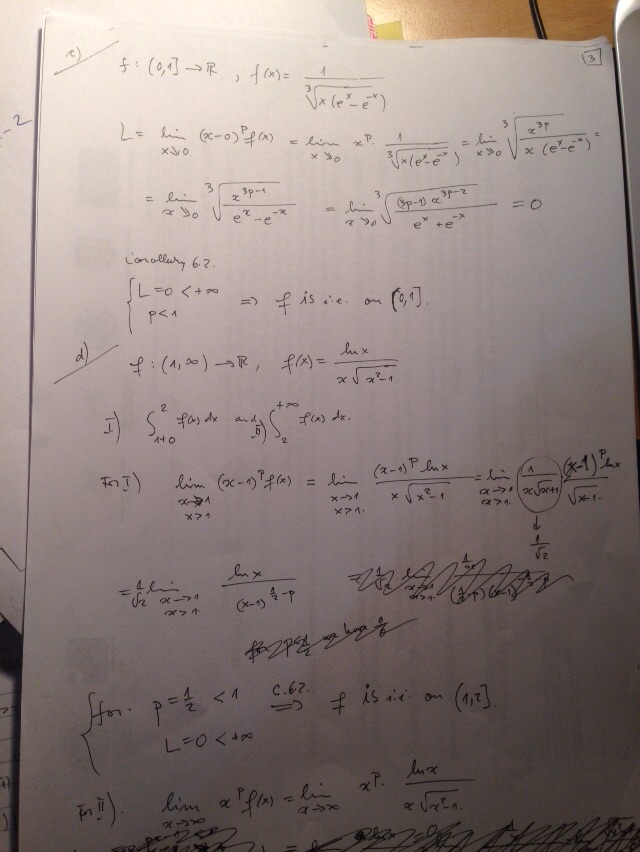 3
c) f : (0,1] → ℝ , f(x) = 1 / ∛(x(e^x − e^{−x}))
L = lim_{x↘0} (x−0)^p f(x) = lim_{x↘0} x^p · 1 / ∛(x(e^x − e^{−x})) = lim_{x↘0} ∛(x^{3p} / (x (e^x − e^{−x}))) =
= lim_{x↘0} ∛(x^{3p−1} / (e^x − e^{−x})) = lim_{x↘0} ∛((3p−1) x^{3p−2} / (e^x + e^{−x})) = 0
Corollary 6.2.
{ L = 0 < +∞
p < 1 ⇒ f is i.i. on (0,1].
d) f : (1,∞) → ℝ, f(x) = ln x / (x √(x²−1))
I) ∫_{1+0}^{2} f(x) dx and II) ∫_{2}^{+∞} f(x) dx.
For I) lim_{x→1, x>1} (x−1)^p f(x) = lim_{x→1, x>1} (x−1)^p ln x / (x √(x²−1)) = lim_{x→1, x>1} 1 / (x√(x+1)) · (x−1)^p ln x / √(x−1)
↓
1/√2
= 1/√2 lim_{x→1, x>1} ln x / (x−1)^{1/2−p}
{ for p = 1/2 < 1 C.6.2. ⇒ f is i.i. on (1,2].
L = 0 < +∞
For II). lim_{x→∞} x^p f(x) = lim_{x→∞} x^p · ln x / (x √(x²−1))